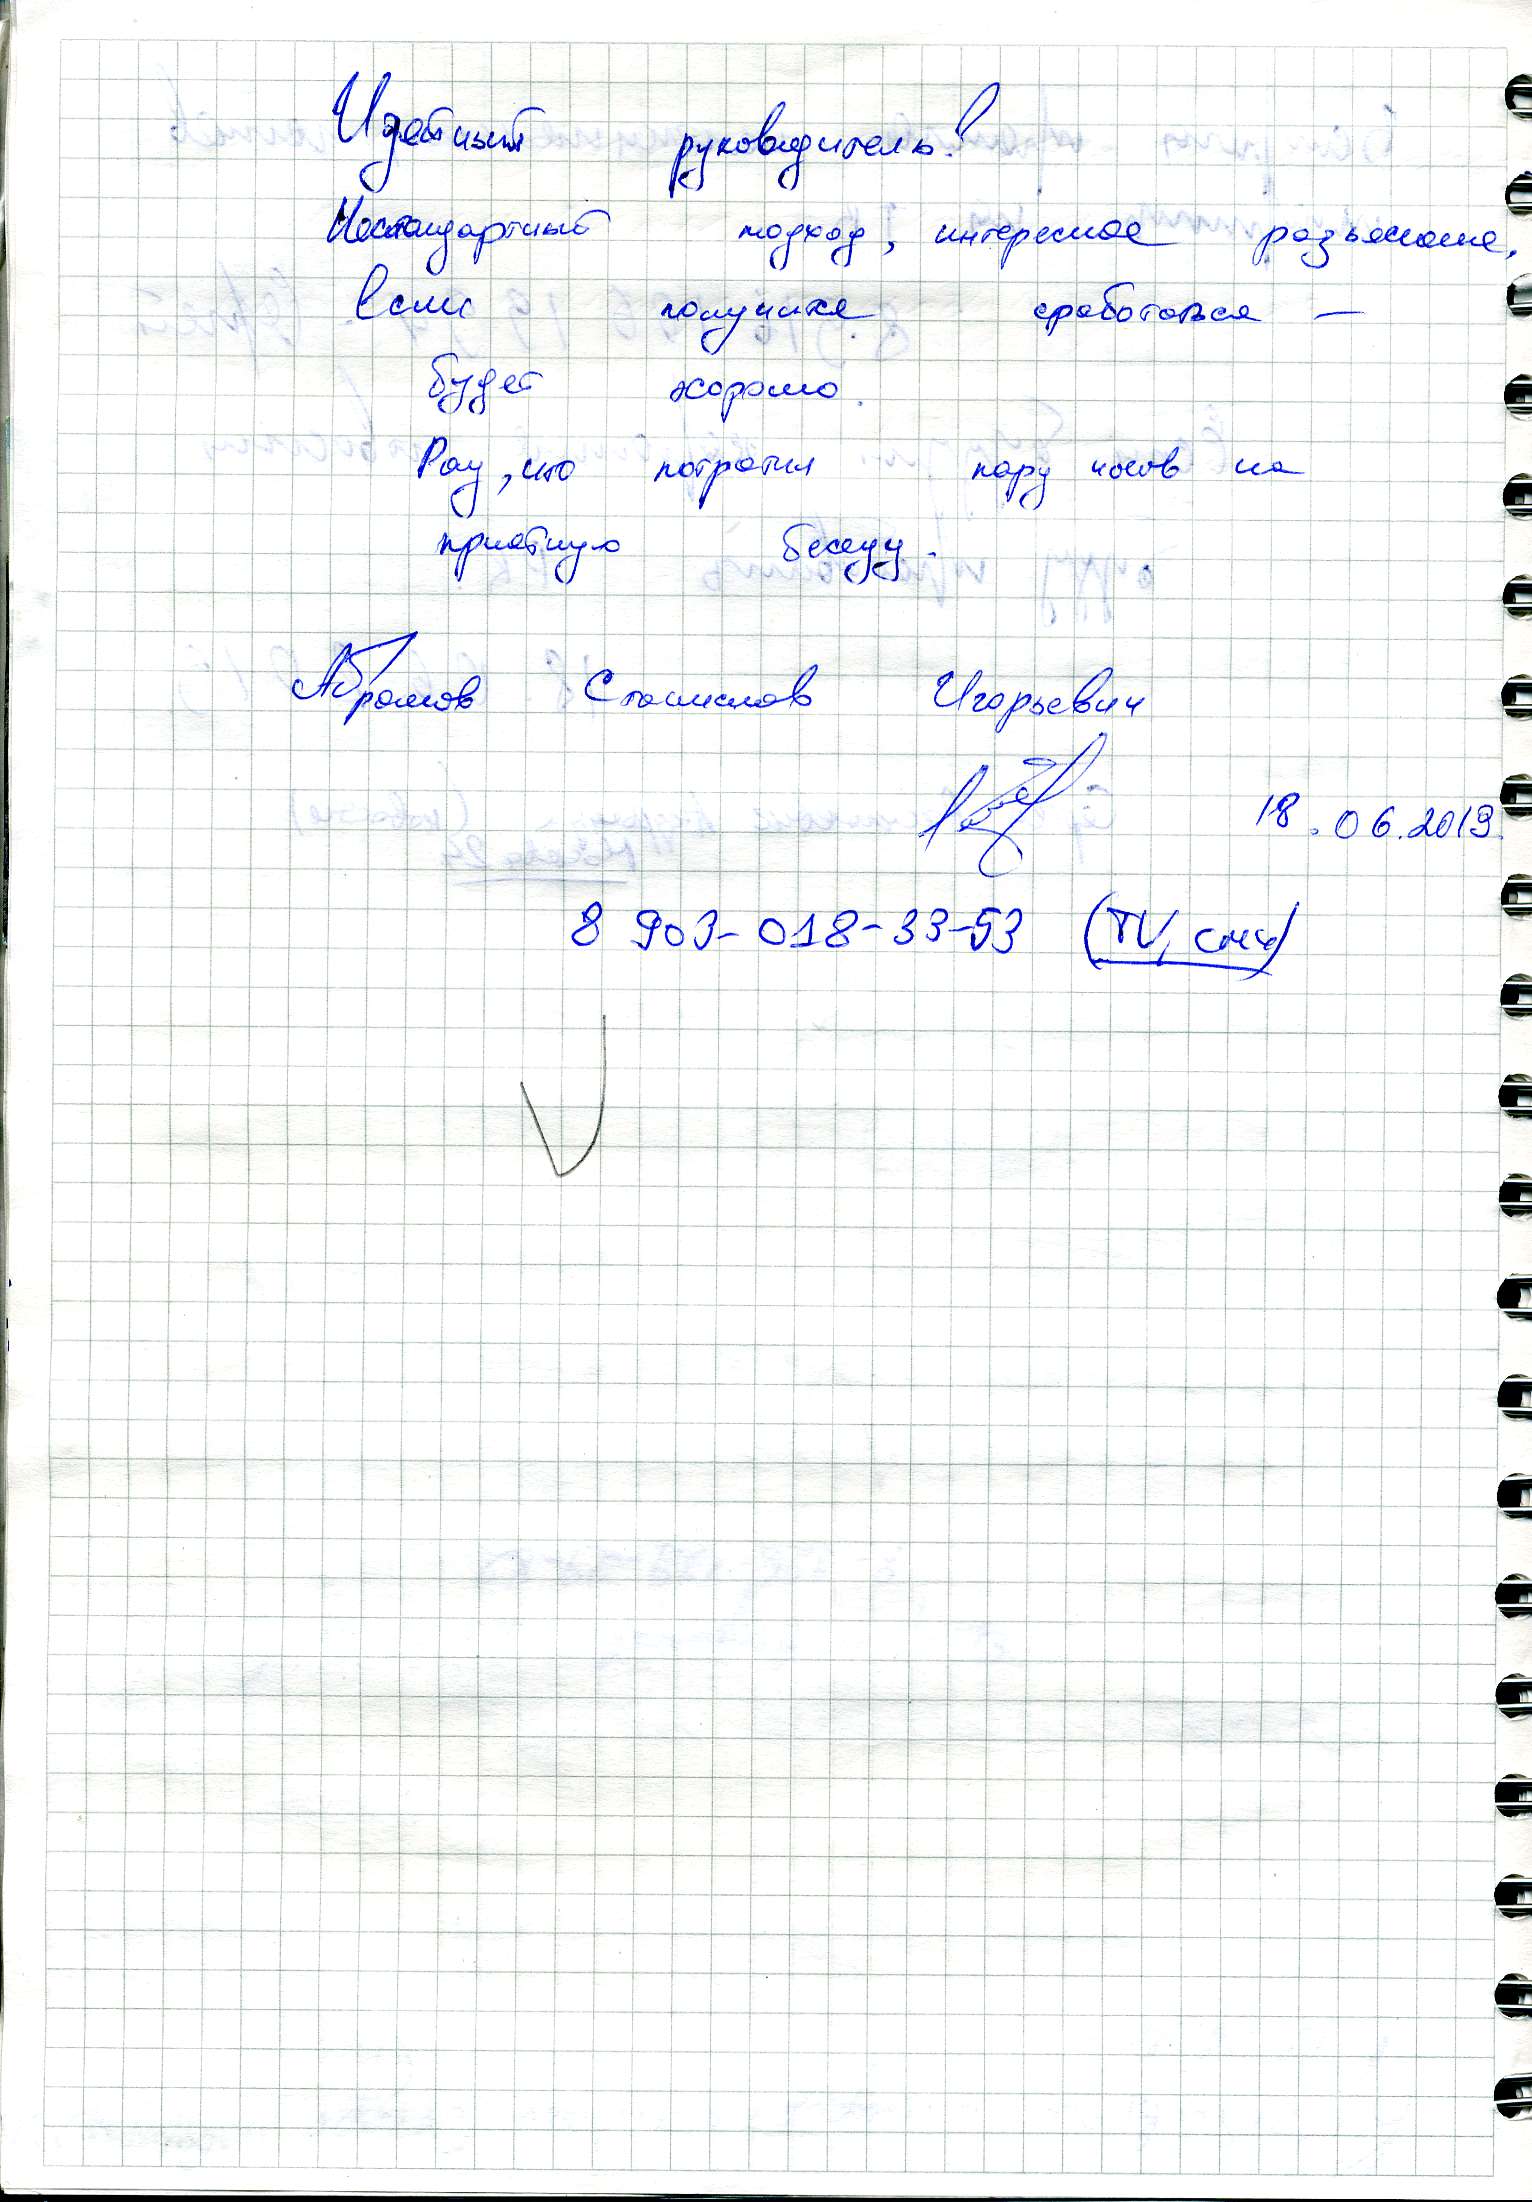 Идейный руководитель!
Нестандартный подход, интересное разъяснение.
Если получится сработаться —
будет хорошо.
Рад, что потратил пару часов на
приятную беседу.
Абрамов Станислав Игорьевич
18.06.2019.
8 903-018-33-53 (TV, сми)